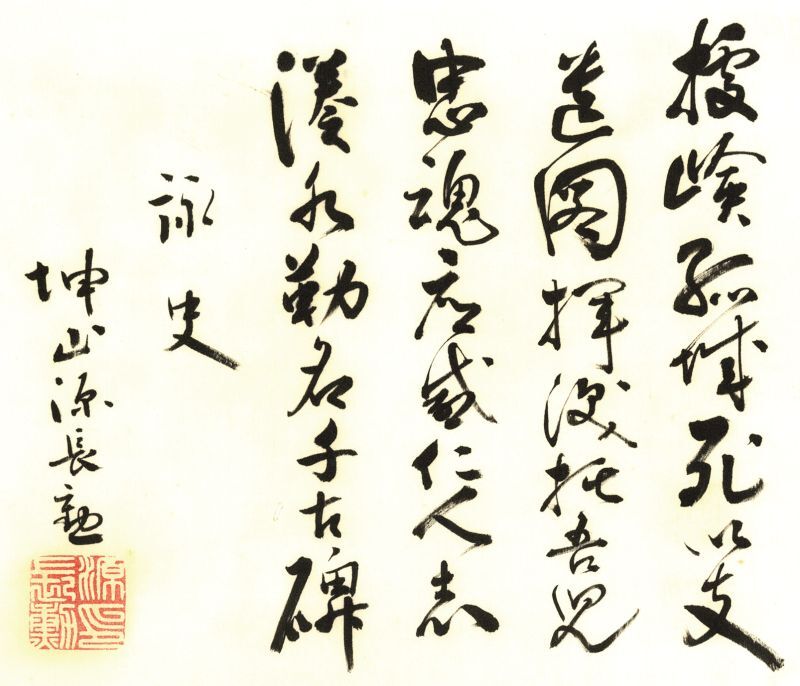 據嶮孤城死以支
遺圖揮涙托吾児
忠魂應感仁人志
湊水勒名千古碑
詠史
坤山源長勲
源印長勲